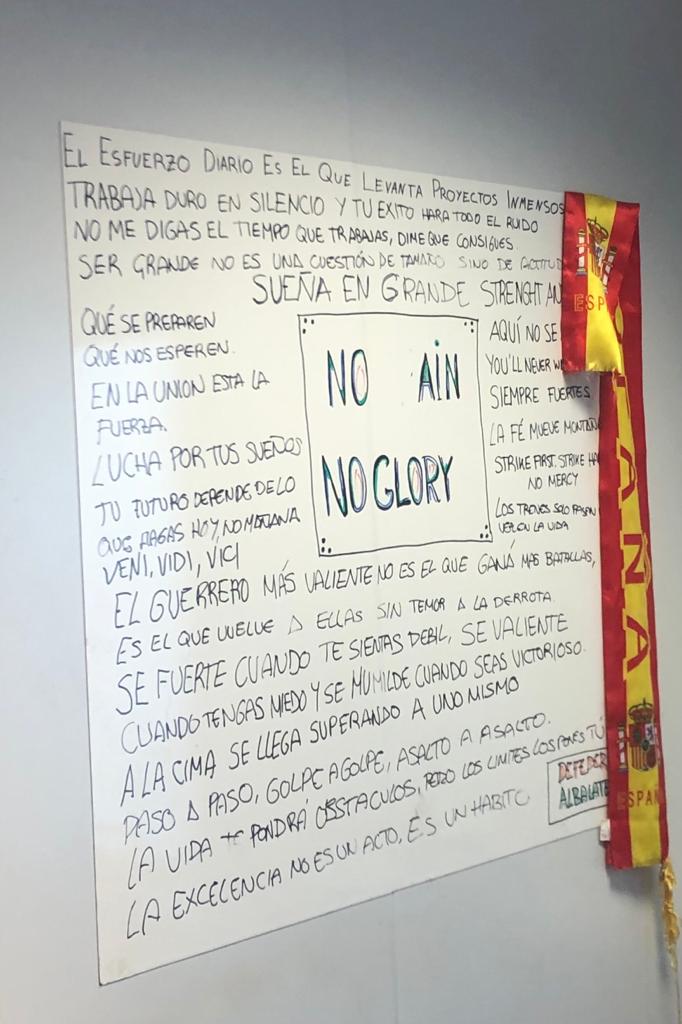 EL ESFUERZO DIARIO ES EL QUE LEVANTA PROYECTOS INMENSOS
TRABAJA DURO EN SILENCIO Y TU EXITO HARA TODO EL RUIDO
NO ME DIGAS EL TIEMPO QUE TRABAJAS, DIME QUE CONSIGUES.
SER GRANDE NO ES UNA CUESTIÓN DE TAMAÑO SINO DE ACTITUD
SUEÑA EN GRANDE STRENGHT AN
QUÉ SE PREPAREN
QUÉ NOS ESPEREN.
EN LA UNION ESTA LA
FUERZA.
LUCHA POR TUS SUEÑOS
TU FUTURO DEPENDE DE LO
QUE HAGAS HOY, NO MAÑANA
VENI, VIDI, VICI
NO AIN
NO GLORY
AQUÍ NO SE
YOU'LL NEVER W
SIEMPRE FUERTES
LA FÉ MUEVE MONTAÑ
STRIKE FIRST, STRIKE HA
NO MERCY
LOS TRENES SOLO PASAN
EN LA VIDA
EL GUERRERO MÁS VALIENTE NO ES EL QUE GANÁ MAS BATALLAS,
ES EL QUE VUELVE A ELLAS SIN TEMOR A LA DERROTA.
SE FUERTE CUANDO TE SIENTAS DEBIL, SE VALIENTE
CUANDO TENGAS MIEDO Y SE HUMILDE CUANDO SEAS VICTORIOSO.
A LA CIMA SE LLEGA SUPERANDO A UNO MISMO
PASO A PASO, GOLPE A GOLPE, ASALTO A ASALTO.
LA VIDA TE PONDRÁ OBSTACULOS, PERO LOS LIMITES LOS PONES TÚ
LA EXCELENCIA NO ES UN ACTO, ES UN HABITO.
ALBALATE
ESP
AÑA
ESPAÑ